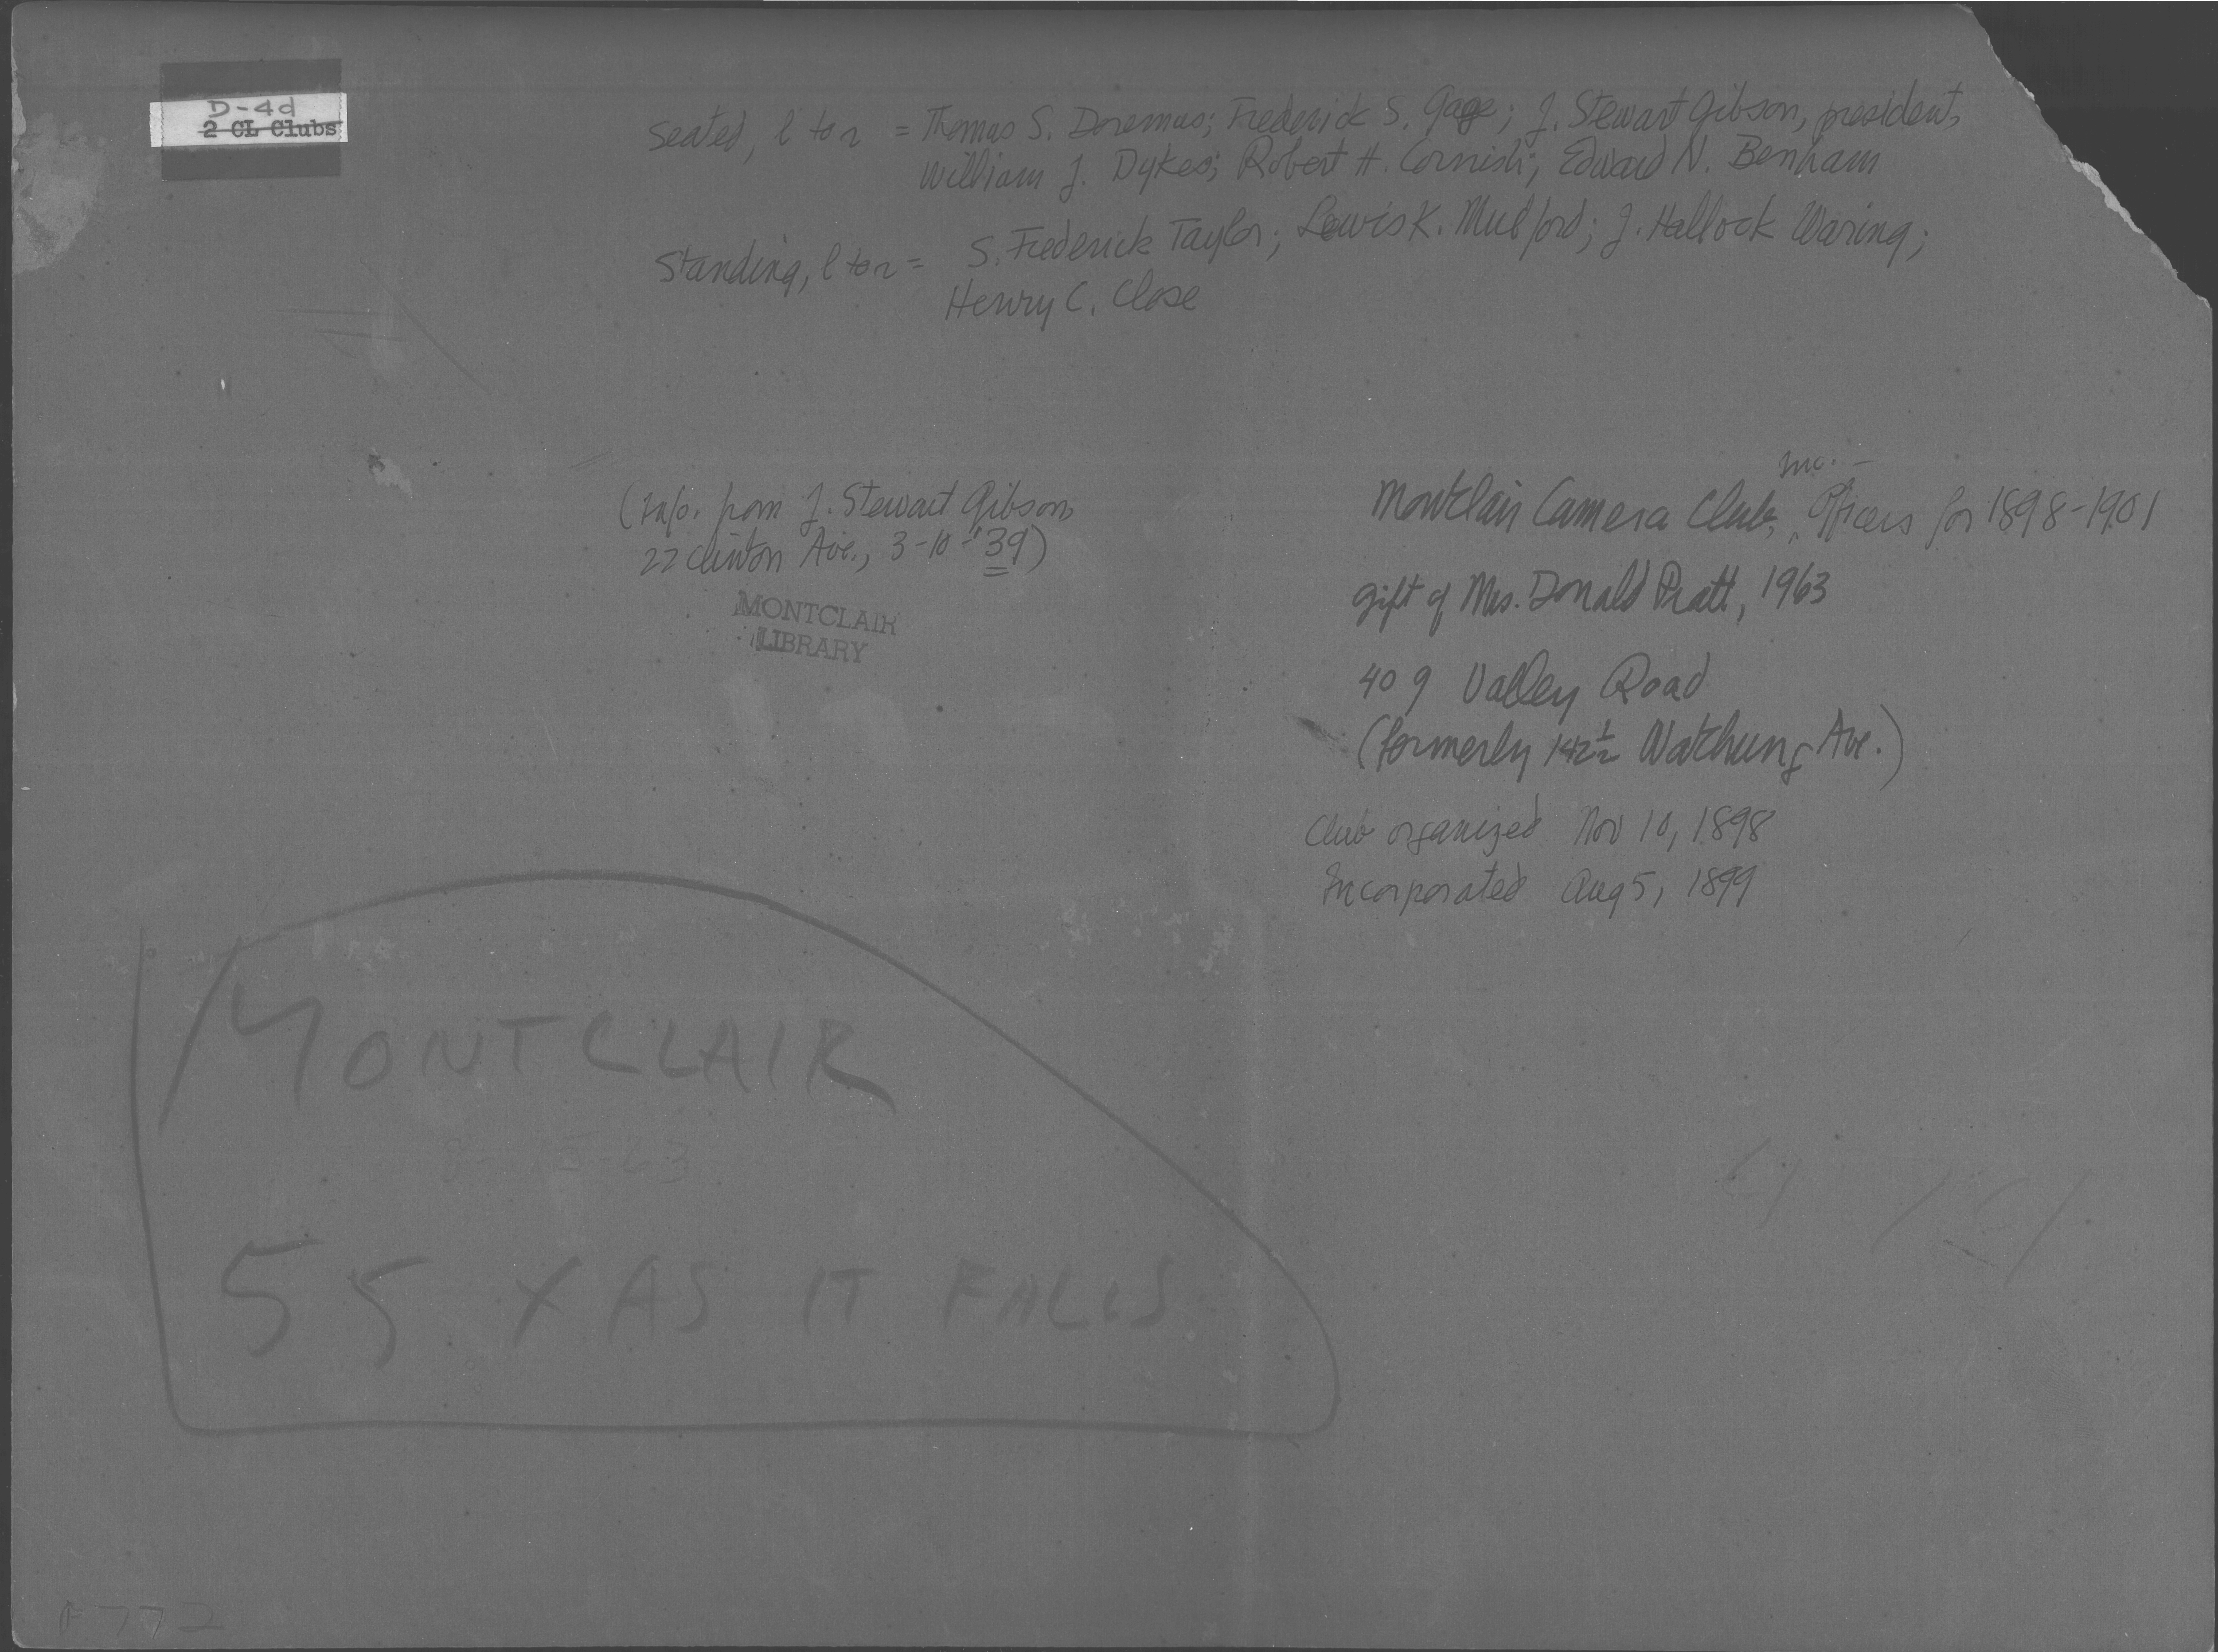 D-4d
2 CL Clubs
Seated, l to r = Thomas S. Doremus; Frederick S. Gage; J. Stewart Gibson, president,
William J. Dykes; Robert H. Cornish; Edward N. Benham
Standing, l to r = S. Frederick Taylor; Lewis K. Mulford; J. Hallock Waring;
Henry C. Close
(Info. from J. Stewart Gibson
22 Clinton Ave., 3-10-'39)
MONTCLAIR
LIBRARY
Inc. -
Montclair Camera Club, Officers for 1898-1901
gift of Mrs. Donald Pratt, 1963
409 Valley Road
(formerly 142½ Watchung Ave.)
Club organized Nov 10, 1898
Incorporated Aug 5, 1899
MONTCLAIR
55 X AS IT FALLS
F 772